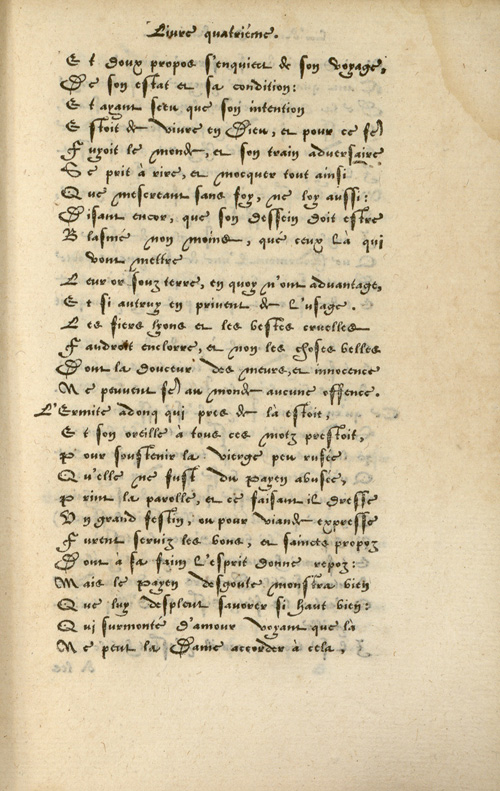 Livre quatriéme.
Et doux propos s'enquiert de son voyage,
De son estat et sa condition:
Et ayant sceu que son intention
Estoit de vivre en Dieu, et pour ce fer
Fuyoit le monde, et son train adversaire
Se prit à rire, et mocquer tout ainsi
Que mescreant sans foy, ne loy aussi:
Disant encor, que son dessein doit estre
Blasmé non moins, que ceux là qui
vont mettre
Leur or souz terre, en quoy n'ont advantage,
Et si autruy en privent de l'usage.
Les fiers lyons et les bestes cruelles
Faudroit enclorre, et non les choses belles
Dont la douceur des meurs, et innocence
Ne peuvent fer au monde aucune offence.
L'Ermite adonq qui pres de là estoit,
Et son oreille à tous ces motz prestoit,
Pour soustenir la vierge peu rusée
Qu'elle ne fust du payen abusée,
Print la parolle, et ce faisant il dresse
Un grand festin, ou pour viande expresse
Furent serviz les bons, et sainctz propoz
Dont à sa faim l'esprit donne repoz:
Mais le payen desgouté monstra bien
Que luy desplent savorer si haut bien:
Qui surmonté d'amour voyant que là
Ne peut la Dame accorder à cela,